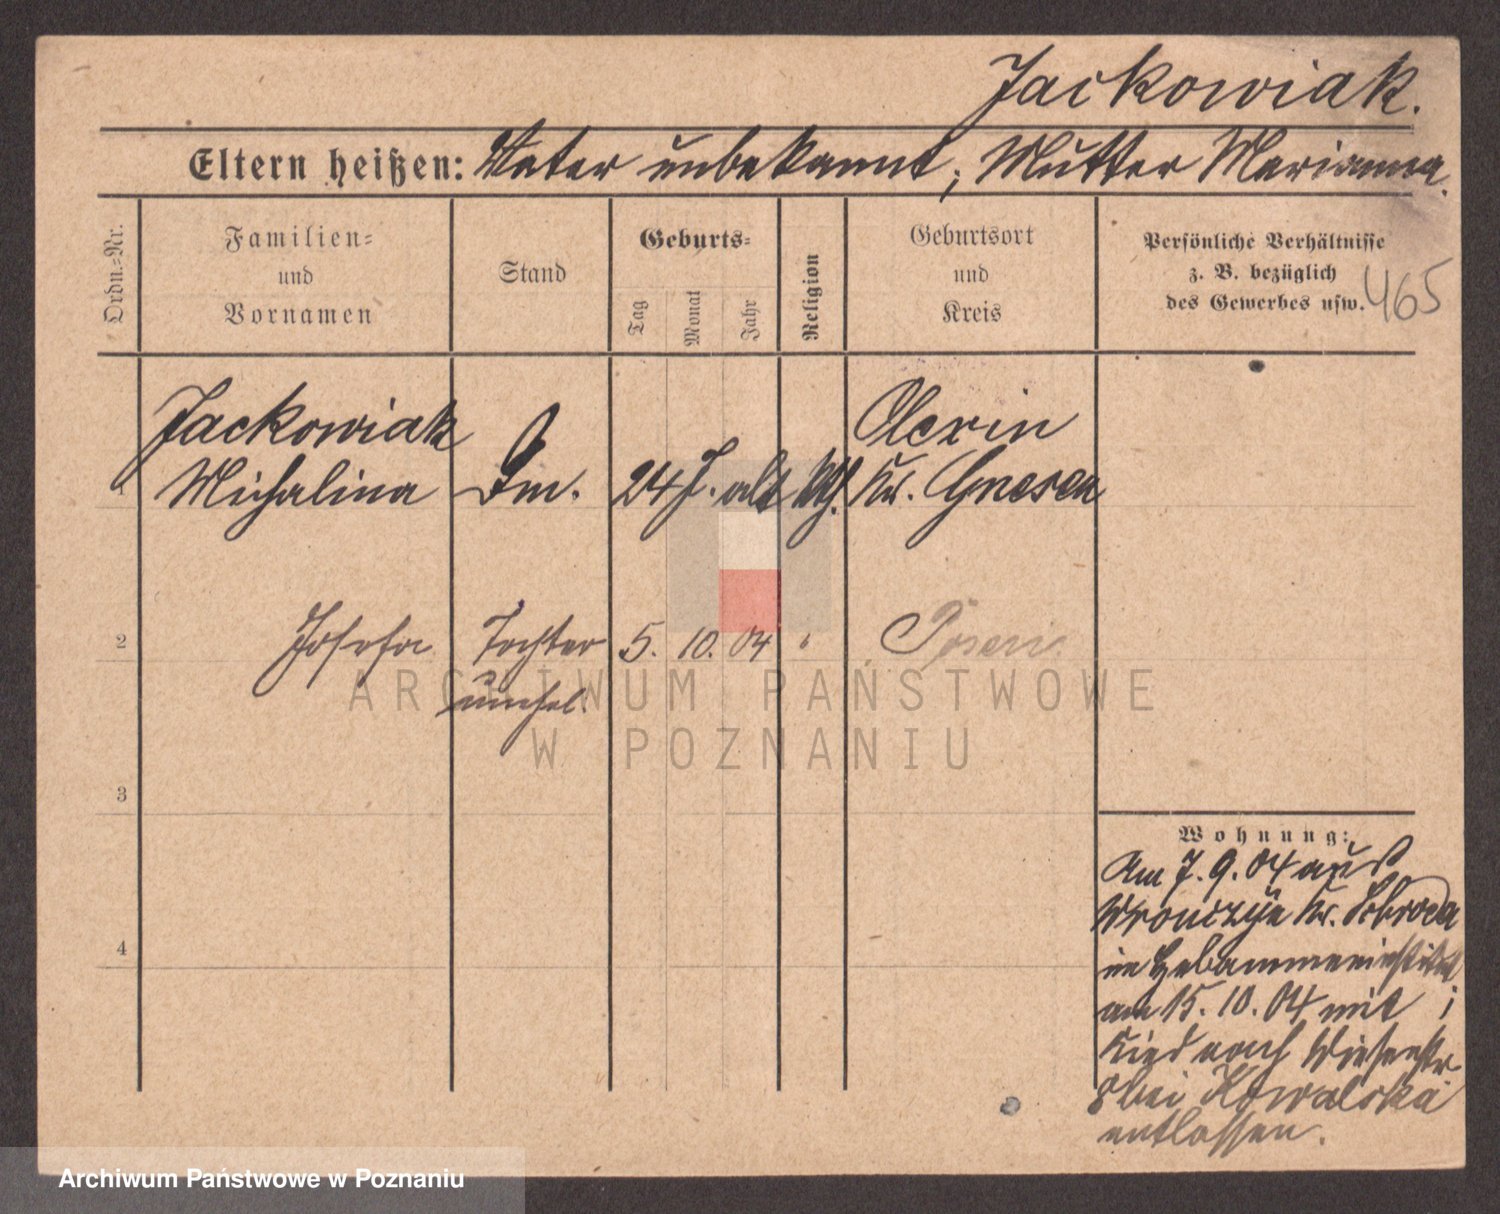 Jackowiak.
Eltern heißen: Vater unbekannt; Mutter Marianna.
Ordn.=Nr.
Familien=
und
Vornamen
Stand
Geburts=
Tag
Monat
Jahr
Religion
Geburtsort
und
Kreis
Persönliche Verhältnisse
z. B. bezüglich
des Gewerbes usw.
465
1
Jackowiak
Michalina
24 J. alt
Kr. Gnesen
2
Josefa
Tochter
unehel.
5.
10.
04
"
Posen
3
4
Wohnung:
Am 7. 9. 04 aus
Kr. Schroda
im Hebammeninstitut
am 15. 10. 04 mit 1
Kind nach Wiesenstr
8 bei Kowalska
entlassen.
ARCHIWUM PAŃSTWOWE
W POZNANIU
Archiwum Państwowe w Poznaniu